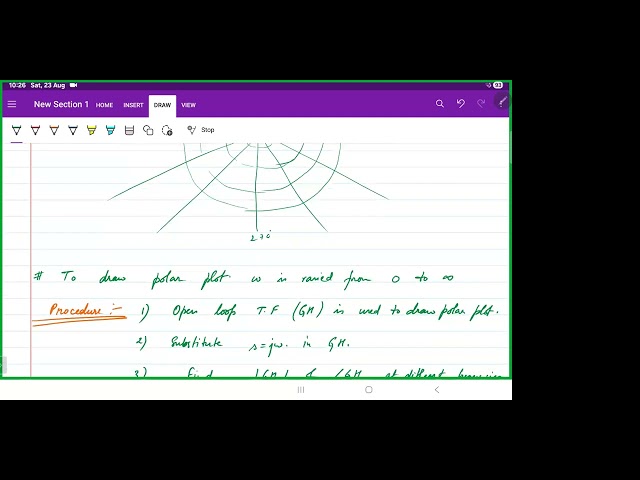 10:26 Sat, 23 Aug 93
New Section 1 HOME INSERT DRAW VIEW
Stop
270°
# To draw polar plot ω is varied from 0 to ∞
Procedure :- 1) Open loop T.F (GH) is used to draw polar plot.
2) Substitute s=jω. in GH.
3) Find |GH| & ∠GH at different